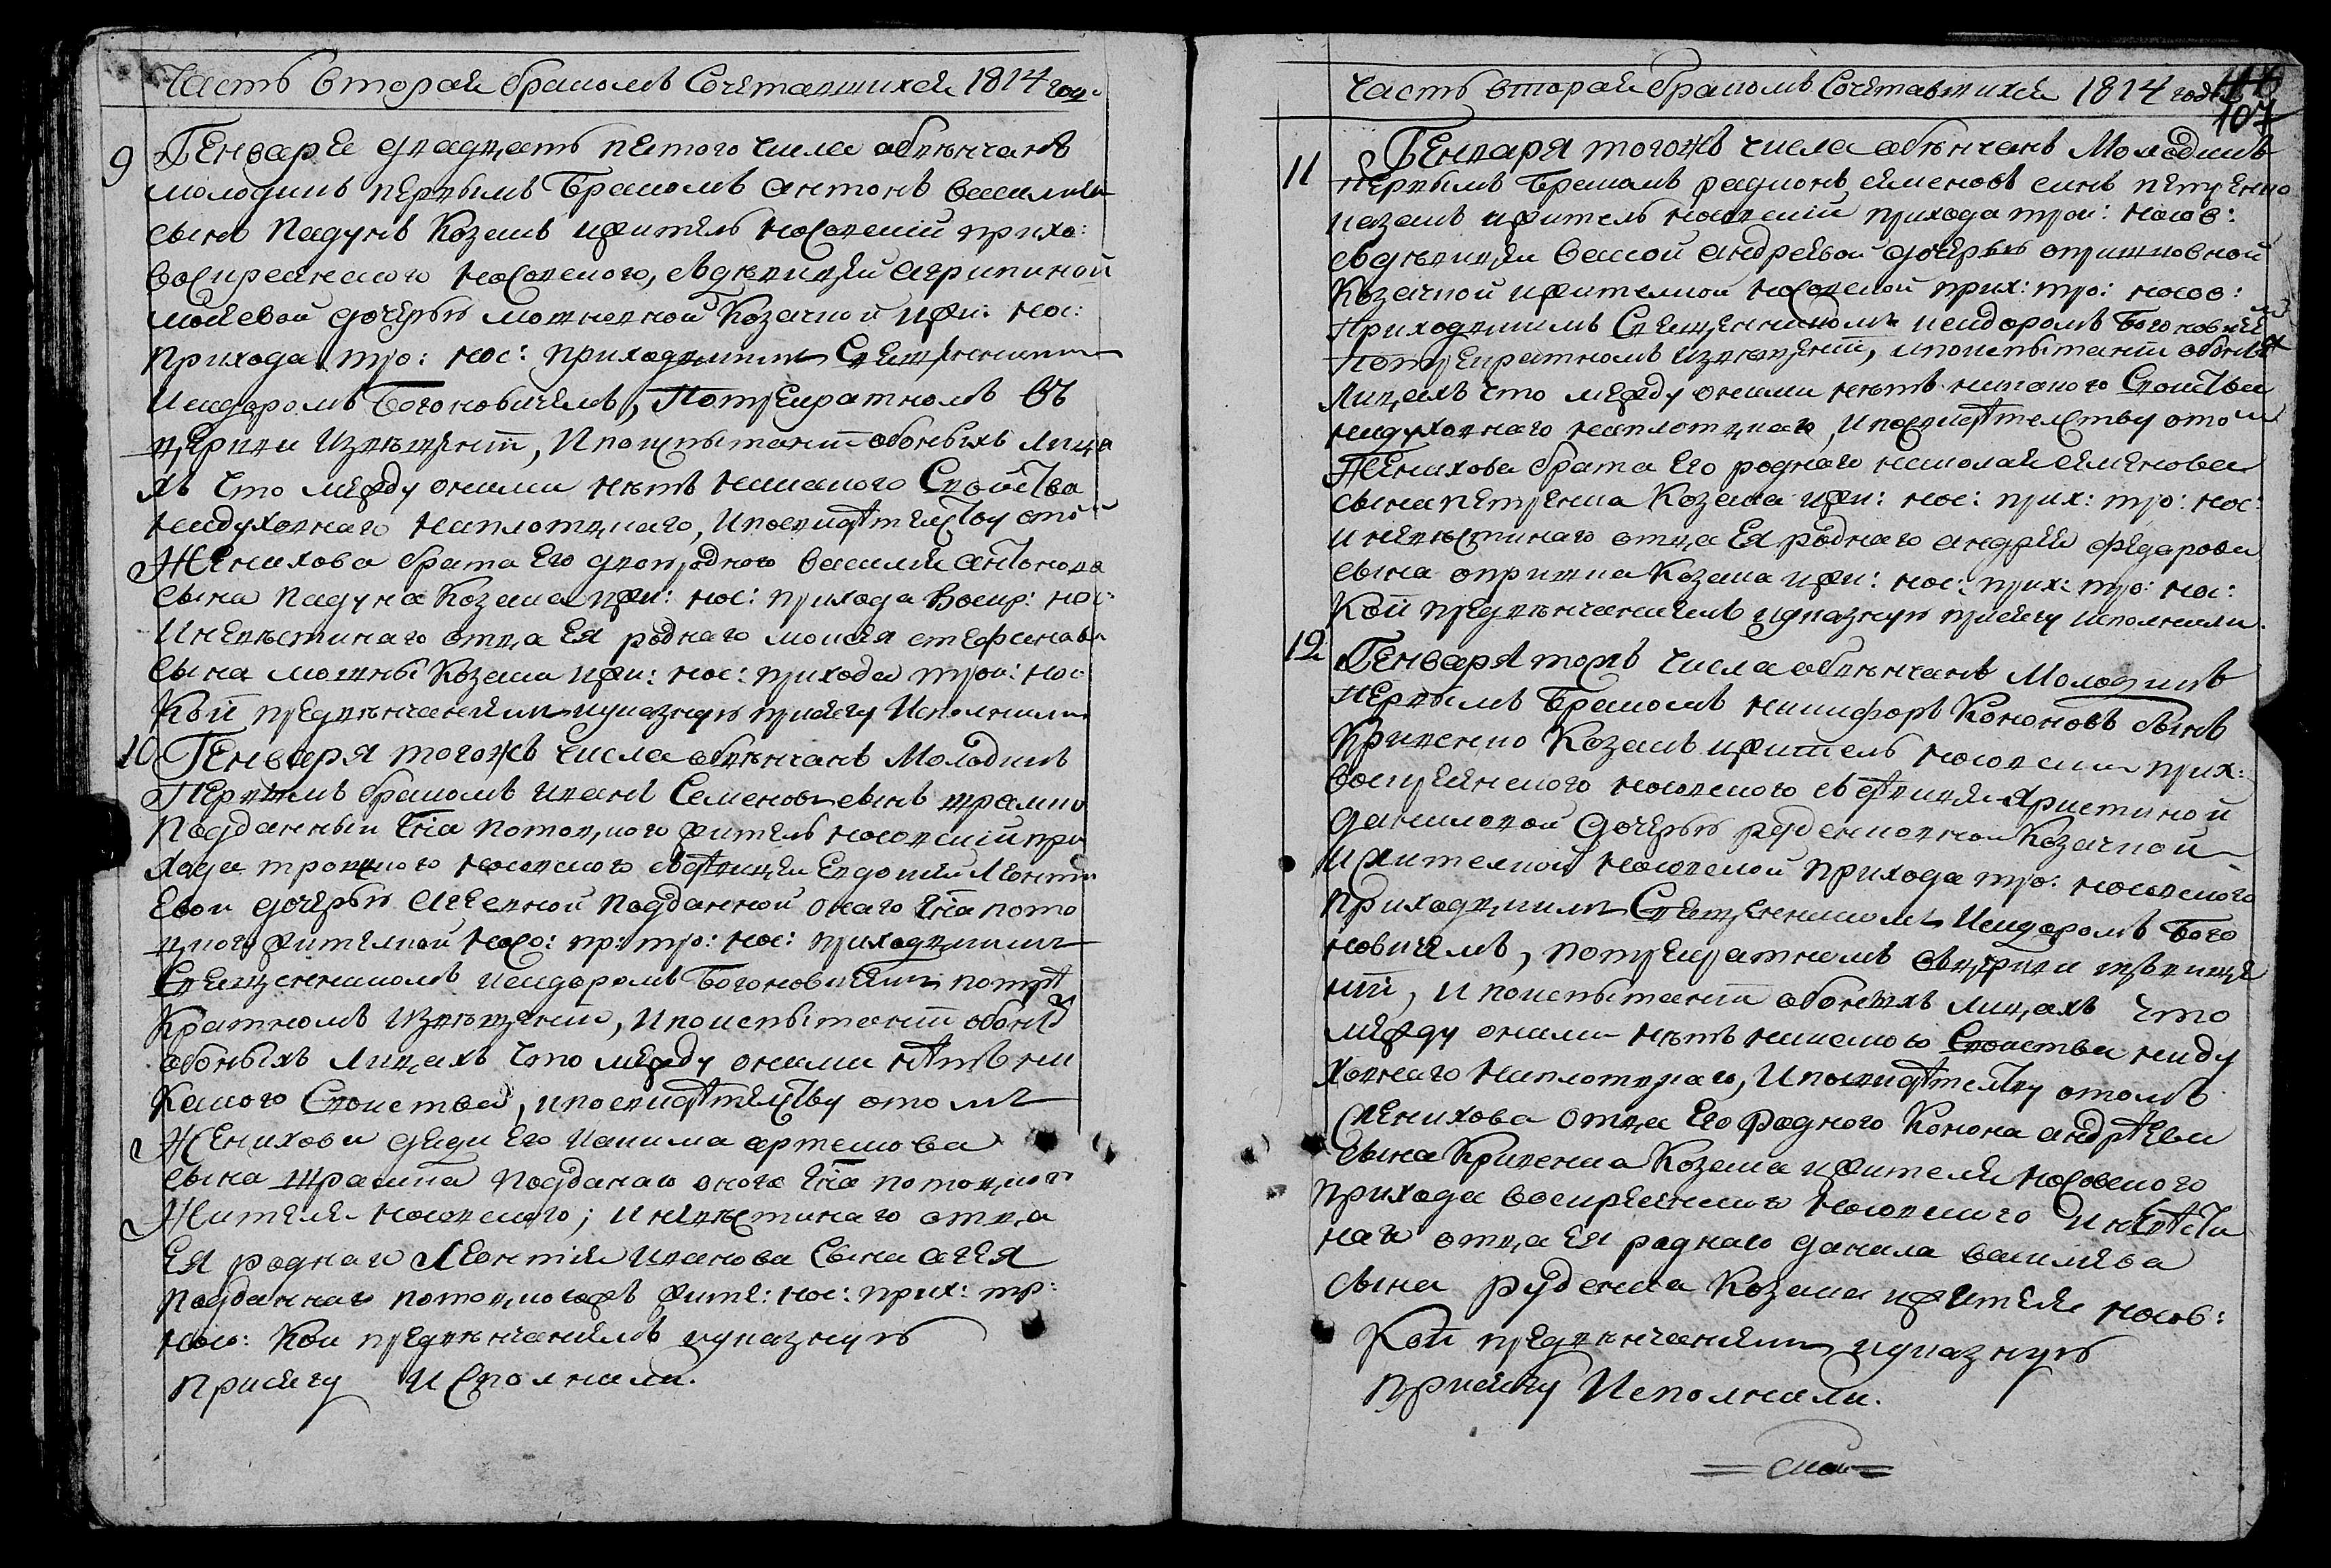 Часть вторая бракомъ Сочетавшихся 1814 года
9 Генваря двадцать пятого числа обвѣнчанъ
молодикъ первымъ бракомъ антонъ василиевъ
сынъ падунъ Козакъ ижитель носовский прихо:
воскресенского носовского, здѣвицей агрипиной
моисеевой дочерью мошновной Козачкой ижи: нос:
прихода тро: нос: приходскимъ Священникомъ
Исидоромъ Богоновичемъ, Потрекратномъ въ
церкви извѣщенїи, Ипоиспытанїи обоныхъ лица
хъ что между оними нѣтъ никакого Свойства
нидуховнаго ниплотскаго, Ипосвидѣтелству отом
Женихова брата Его двоюродного василия антонова
сына падуна Козака ижи: нос: прихода Воскр: нос:
Иневѣстинаго отца Ея роднаго моисея стефанова
сына мошны Козака ижи: нос: прихода трои: нос:
Кои предвѣнчаниемъ иуказную присягу Исполнили
10 Генваря тогожъ числа обвѣнчанъ Молодикъ
Первымъ бракомъ иванъ Семеновъ сынъ шрамко
Подданный Гна потоцкого житель носовский при
хода троицкого носовского здѣвицей Евдокией Леонти
евой дочерью агеевной подданной онаго Гна пото
цкого жителкой носо: пр: тро: нос: приходскимъ
Священникомъ исидоромъ Богоновичемъ потре
Кратномъ извѣщении, Ипоиспытанїи обоны
обоныхъ лицахъ что между оними нѣтъ ни
Какого Свойства, ипосвидѣтелству отомъ
Женихова дяди Его иакима артемова
сына шрамка подданаго оного Гна потоцкого
Жителя носовского; Иневѣстинаго отца
Ея роднаго Леонтия иванова Сына агея
подданнаго потоцкогожъ жите: нос: прих: тр:
носо: Кои предвѣнчаниемъ иуказную
присягу Исполнили.
Часть вторая бракомъ Сочетавшихся 1814 года
107
11 Генваря тогожъ числа обвѣнчанъ Молодикъ
первымъ бракомъ радионъ семеновъ синъ петренко
казакъ ижитель носовский прихода трои: носов:
здѣвицей васой андреевой дочерью опришковной
Козачкой ижителкой носовской прих: тро: носов:
Приходскимъ Священникомъ исидоромъ Богоновичемъ
Потрекратномъ извѣщенїи, ипоиспытанїи обоныхъ
Лицахъ что между оними нѣтъ никакого Свойства
нидуховнаго ниплотцкаго, Ипосвидѣтелству отом
Женихова брата Его роднаго николая семенова
сына петренка Козака ижи: нос: прих: тро: нос:
Иневѣстинаго отца Ея роднаго андрея федорова
сына опришка Козака ижи: нос: прих: тро: нос:
Кои предвѣнчаниемъ иуказную присягу исполнили.
12 Генваря тожъ числа обвѣнчанъ Молодикъ
Первымъ Бракомъ никифоръ Кононовъ сынъ
Кривенко Козакъ ижитель носовский прих:
воскресенского носовского здѣвицей Христиной
даниловой дочерью руденковной Козачкой
ижителкой носовской прихода тро: носовского
приходскимъ Священникомъ Исидоромъ Бого
новичемъ, потрекратномъ въцеркви извѣще
нїи, Ипоиспытанїи обоныхъ лицахъ что
между оними нѣтъ никакого Свойства ниду
ховнаго ниплотцкаго, Ипосвидѣтелству отомъ
Женихова отца Его родного Конона андрѣева
сына Кривенка Козака ижителя носовского
прихода воскресенского носовского Иневѣсти
наго отца Ея роднаго данила василиева
сына руденка Козака ижителя носов:
Кои предвѣнчаниемъ иуказную
присягу Исполнили.